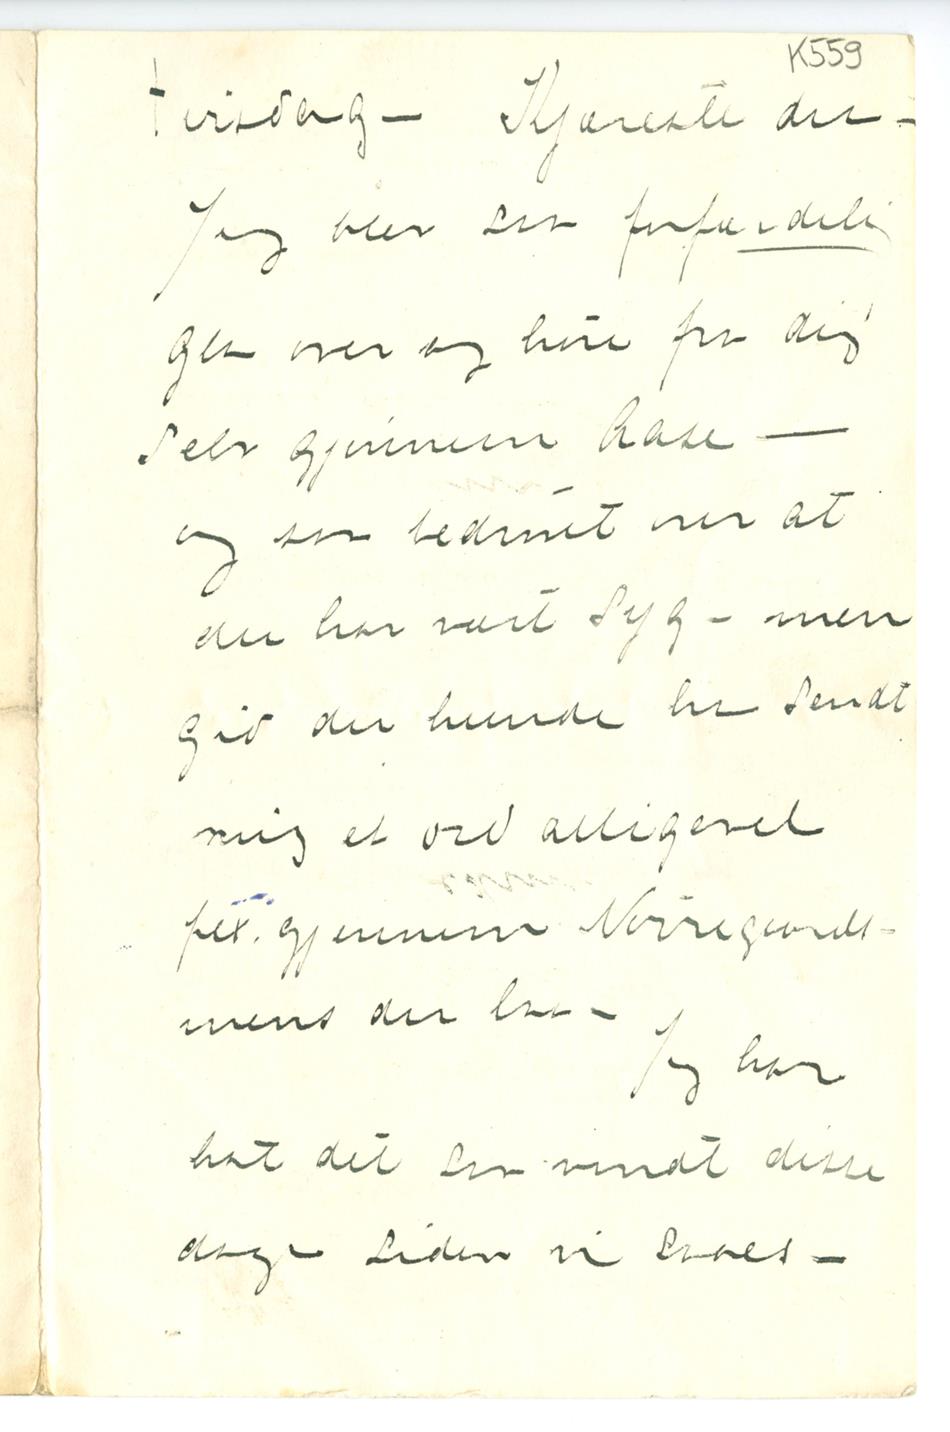 K559
tirsdag – Kjæreste du –
Jeg blev saa forfærdelig
gla over og høre fra dig
selv gjennem Aase —
og saa bedrøvet over at
du har vært syg – men
gid du kunde ha sendt
mig et ord alligevel
fex. gjennem Nørregaards –
mens du laa –
Jeg har
hat det saa vondt disse
dage siden vi saaes –